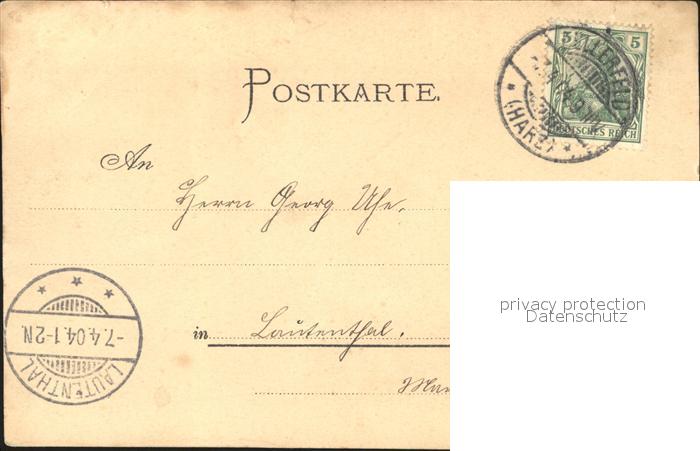 5 5
DEUTSCHES REICH
(HARZ)
POSTKARTE.
An
Herrn Georg Uhe.
privacy protection
Datenschutz
-7.4.04.1-2N.
LAUTENTHAL
in Lautenthal.